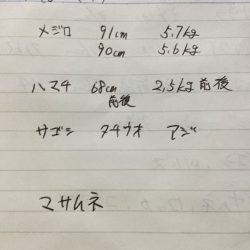 メジロ 91cm 5.7kg
90cm 5.6kg
ハマチ 68cm前後 2.5kg前後
サゴシ タチウオ アジ
マサムネ